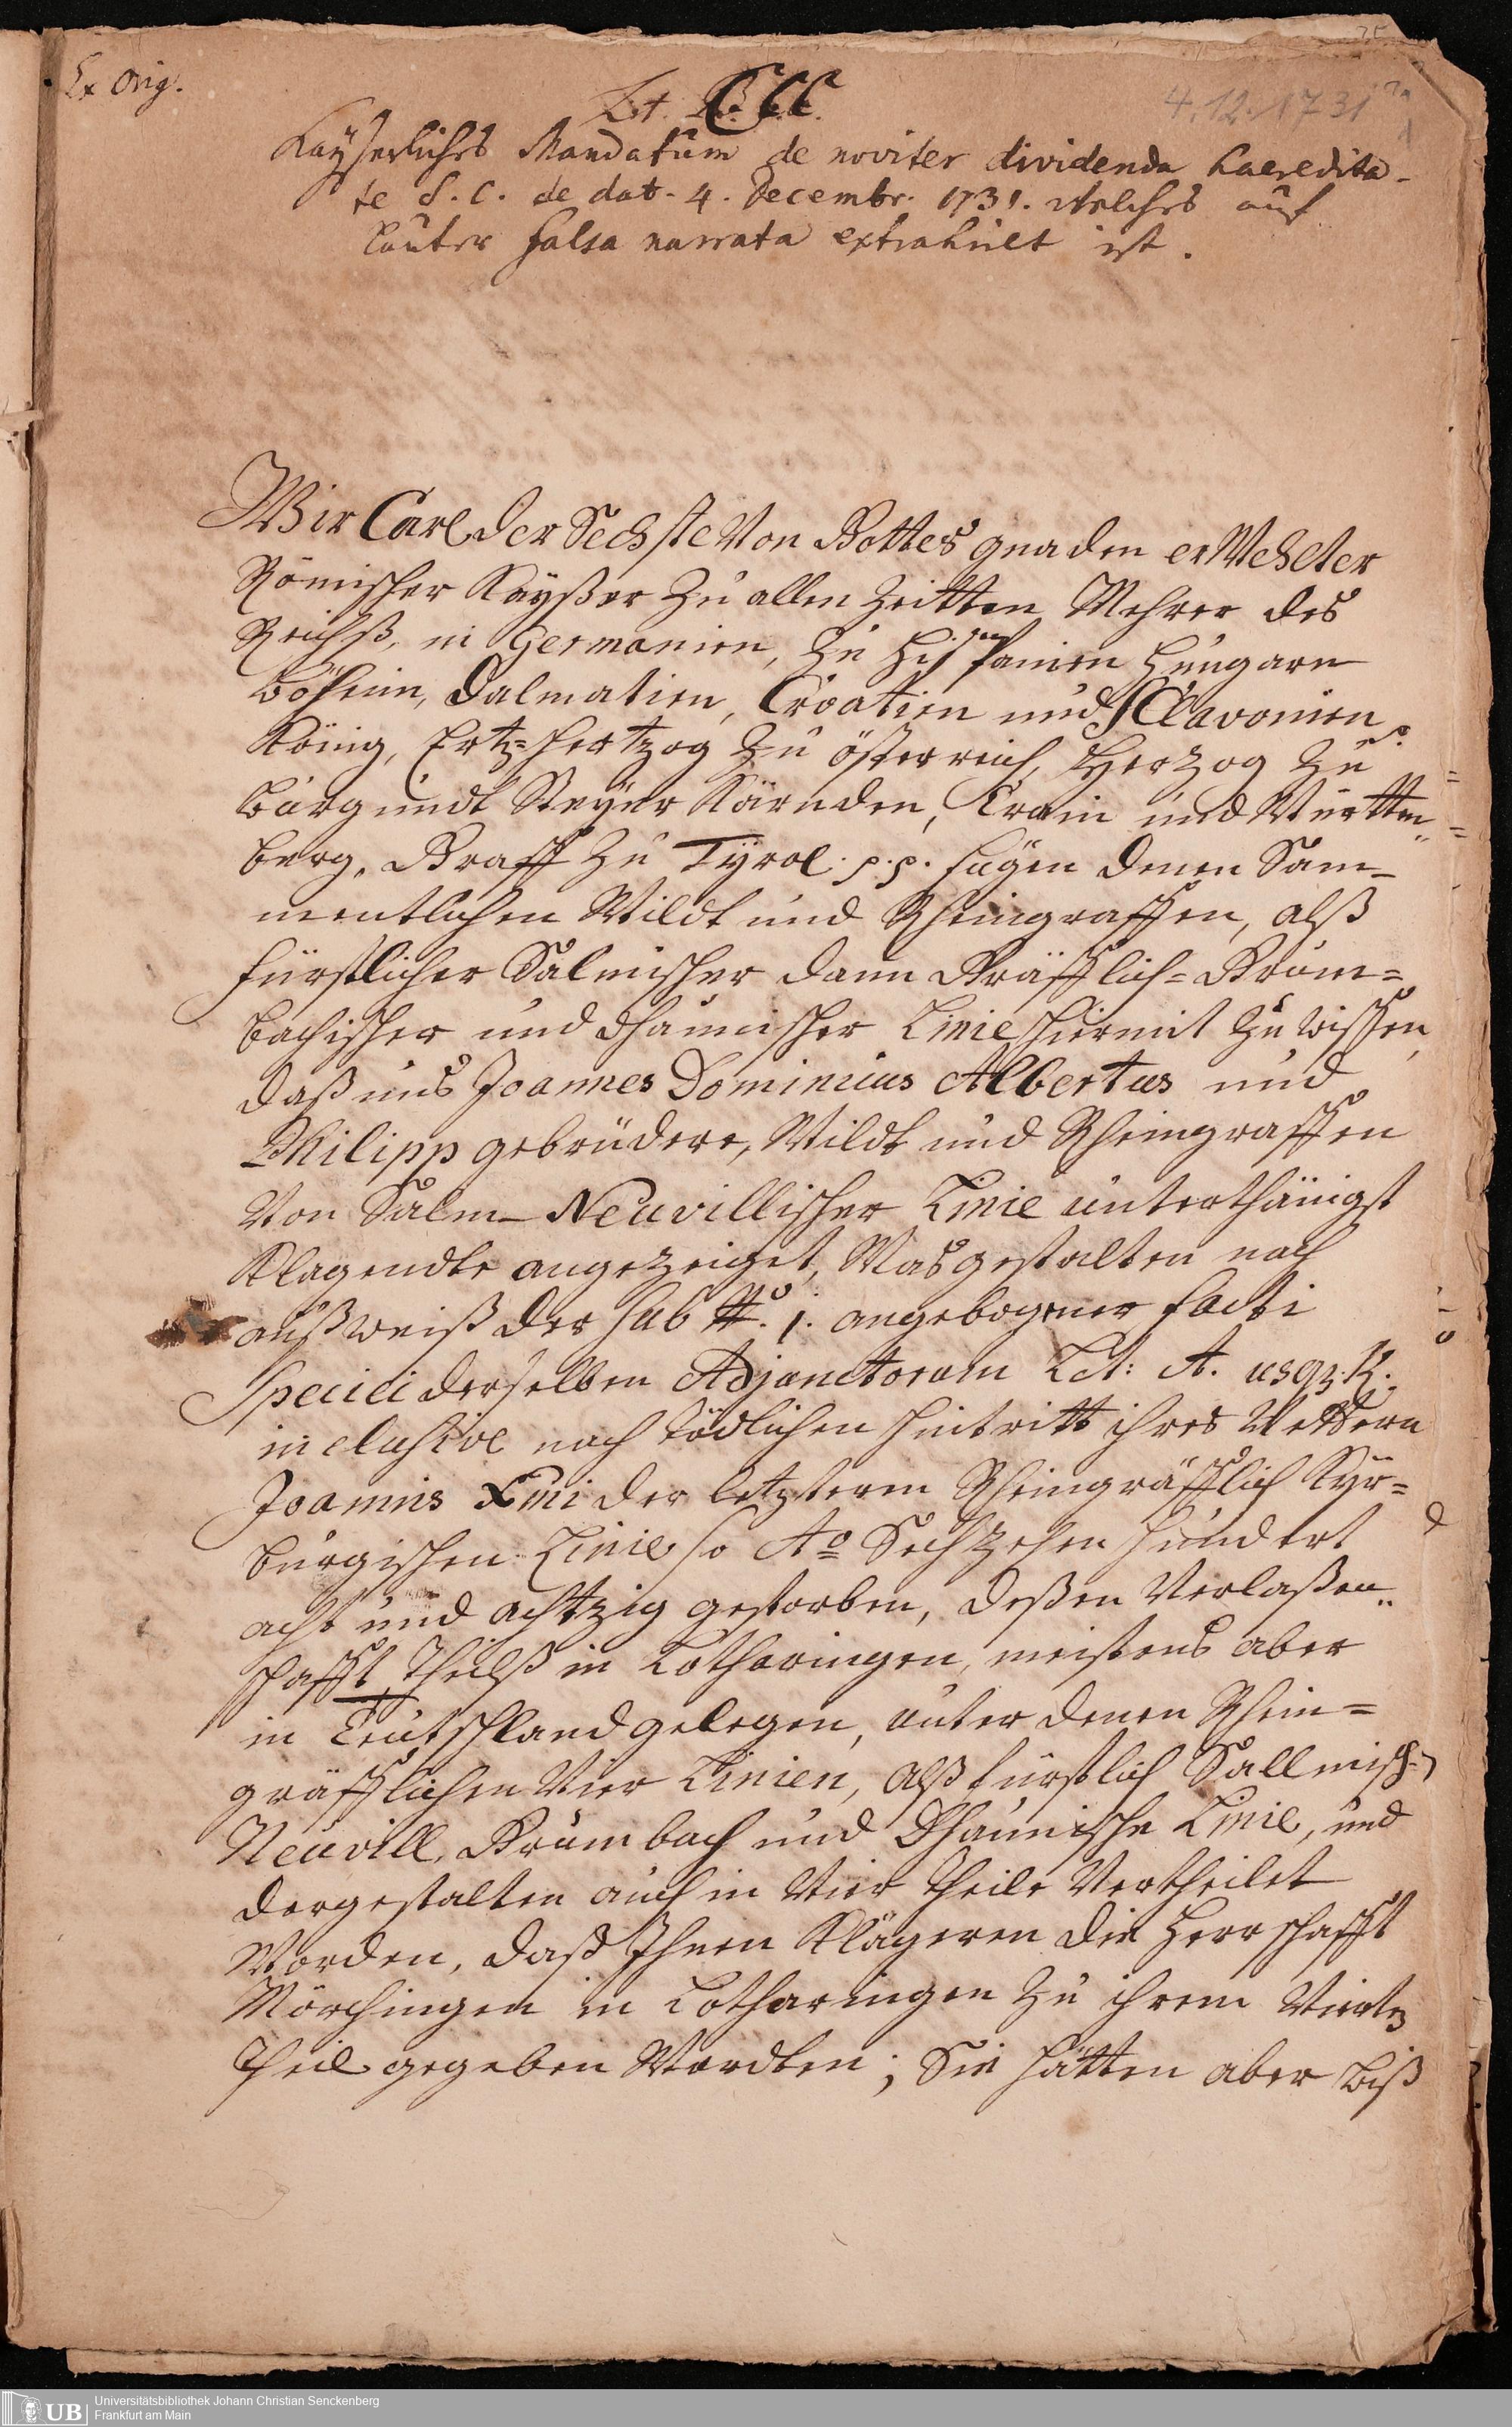 Ex orig.
Lt. CCC
4.12.1731
Kayserliches Mandatum de noviter dividenda haeredita-
te S. C. de dat. 4. Decembr. 1731. welches auf
lauter falsa narrata extrahirt ist.
Wir Carl der Sechste Von Gottes gnaden erWehlter
Römischer Kayßer Zu allen Zeitten Mehrer des
Reichß, in Germanien, Zu Hispanien Hungarn
Böheim, Dalmatien, Croatien und Sclavonien
König, Ertz-Hertzog Zu österreich, Hertzog Zu
Burgundt Steyer Kärnden, Crain und Württem-
berg, Graff Zu Tyrol. p. p. fügen denen Sam-
mentlichen Wildt und Rheingraffen, alß
fürstlicher Salmischer dann Gräfflich-Grum-
bachischer und dhaunischer Linie hiermit zu wissen,
daß uns Joannes Dominicus Albertus und
Philipp gebrüdere, Wildt und Rheingraffen
Von Salm-Neuvillischer Linie unterthänigst
Klagendte angezeiget, Was gestalten nach
außweiß der sub N. 1. angebogener facti
Speciei derselben Adjunctorum Lit: A. usq. K.
inclusive nach tödlichen hintritt ihres Vettern
Joannis Xmi der letzteren Rheingräfflich Kyr-
burgischen Linie so Ao Sechzehen hundert
acht und achtzig gestorben, deßen Verlaßen-
schafft, theilß in Lotharingen, meistens aber
in Teutschland gelegen, unter denen Rhein-
gräfflichen Vier Linien, alß fürstlich Sallmisch-
Neuvill, Grumbach und Dhaunische Linie, und
dergestalten auch in Vier theile Vertheilet
Worden, daß Ihnen Klägeren die Herrschafft
Mörchingen in Lotharingen zu ihrem Vierten
theil gegeben Wordten; Sie hätten aber biß
Universitätsbibliothek Johann Christian Senckenberg
UB
Frankfurt am Main